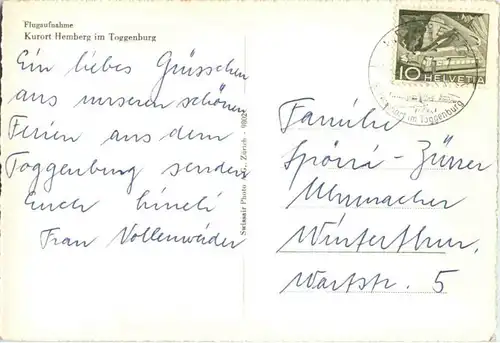 Flugaufnahme
Kurort Hemberg im Toggenburg
Ein liebes Grüsschen
aus unseren schönen
Ferien aus dem
Toggenburg senden
Euch
Frau Vollenweider
Swissair Photo Zürich
10 HELVETIA
im Toggenburg
Familie
Spörri-Zürrer
Uhrmacher
Winterthur,
Wartstr. 5